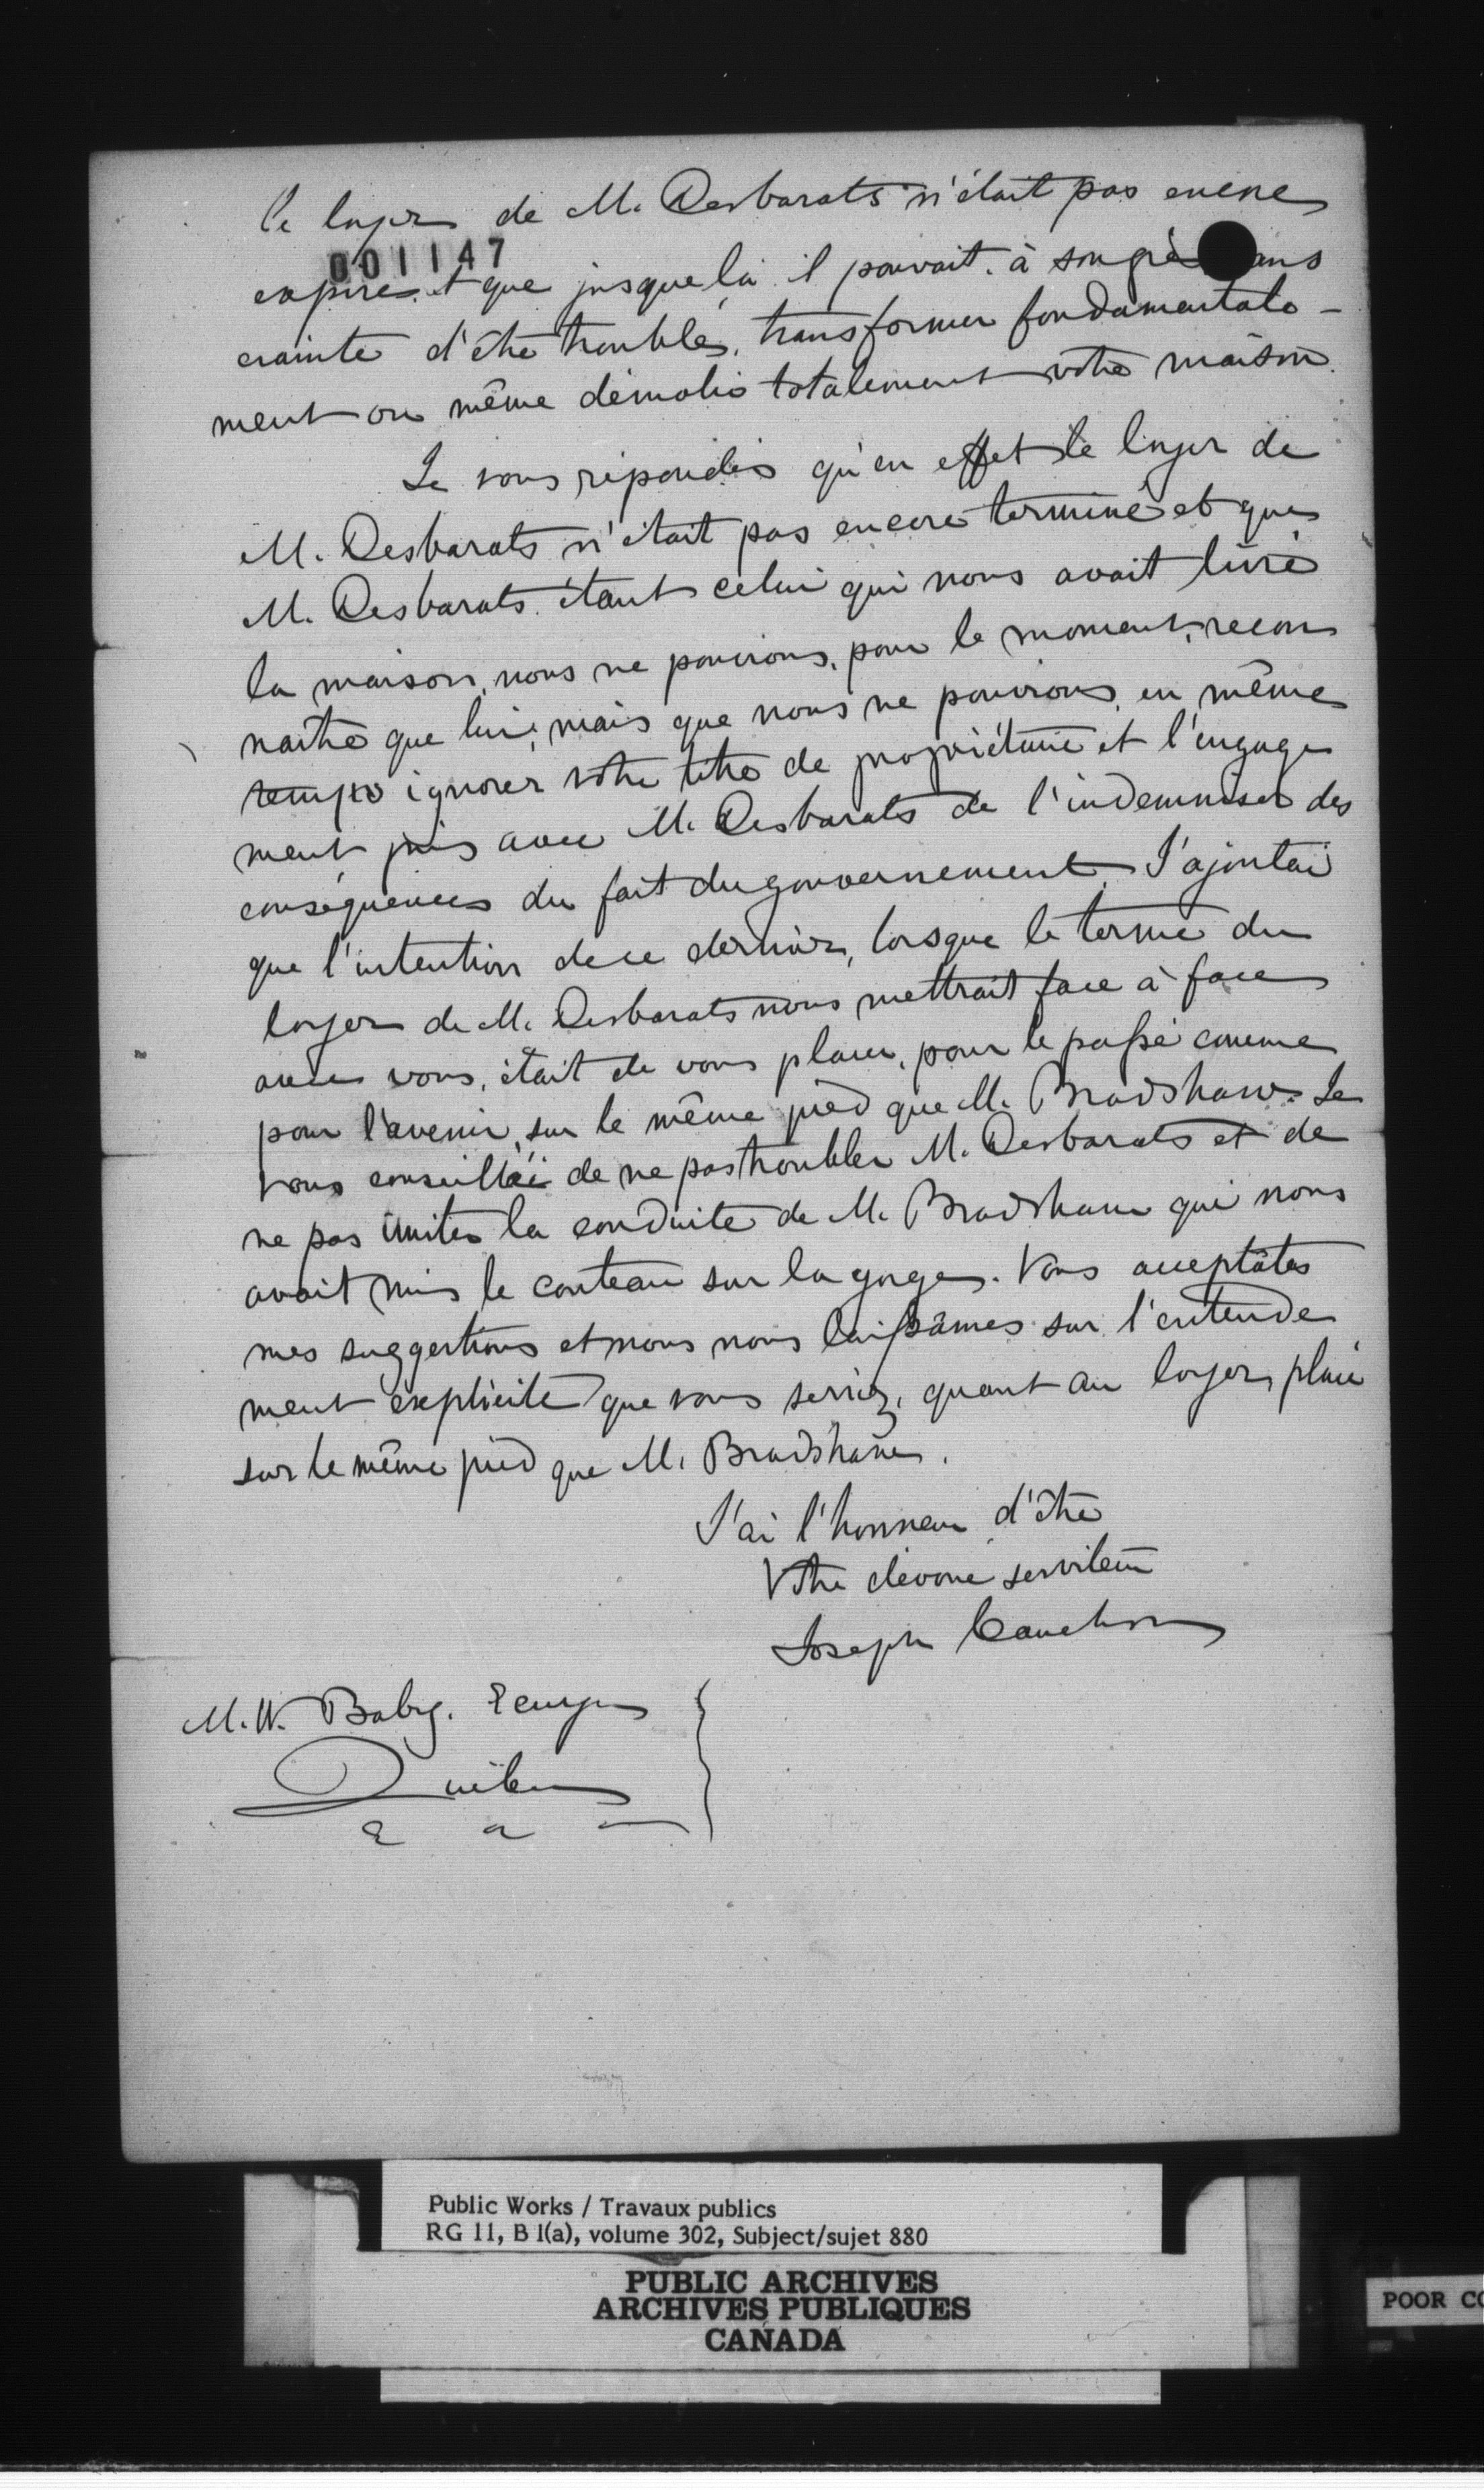 le loyer de M. Desbarats n'était pas encore
001147
expiré et que jusque là il pouvait, à son gré ans
crainte d'être troublé, transformer fondamentale-
ment ou même démolir totalement votre maison.
Je vous répondis qu'en effet le loyer de
M. Desbarats n'était pas encore terminé et que
M. Desbarats étant celui qui nous avait livré
la maison, nous ne pouvions, pour le moment, recon
naître que lui, mais que nous ne pouvions, en même
temps ignorer votre titre de propriétaire et l'engage
ment pris avec M. Desbarats de l'indemniser des
conséquences du fait du gouvernement. J'ajoutai
que l'intention de ce dernier, lorsque le terme du
loyer de M. Desbarats nous mettrait face à face
avec vous, était de vous placer, pour le passé comme
pour l'avenir, sur le même pied que M. Bradshaw. Je
vous conseillai de ne pas troubler M. Desbarats et de
ne pas imiter la conduite de M. Bradshaw qui nous
avait mis le couteau sur la gorge. Vous acceptâtes
mes suggestions et nous nous laissâmes sur l'entende
ment explicite que vous seriez, quant au loyer, placé
sur le même pied que M. Bradshaw.
J'ai l'honneur d'être
Votre dévoué serviteur
Joseph Cauchon
M. W. Baby. Ecuyer
Québec
Public Works / Travaux publics
RG 11, B 1(a), volume 302, Subject/sujet 880
PUBLIC ARCHIVES
ARCHIVES PUBLIQUES
CANADA
POOR CO